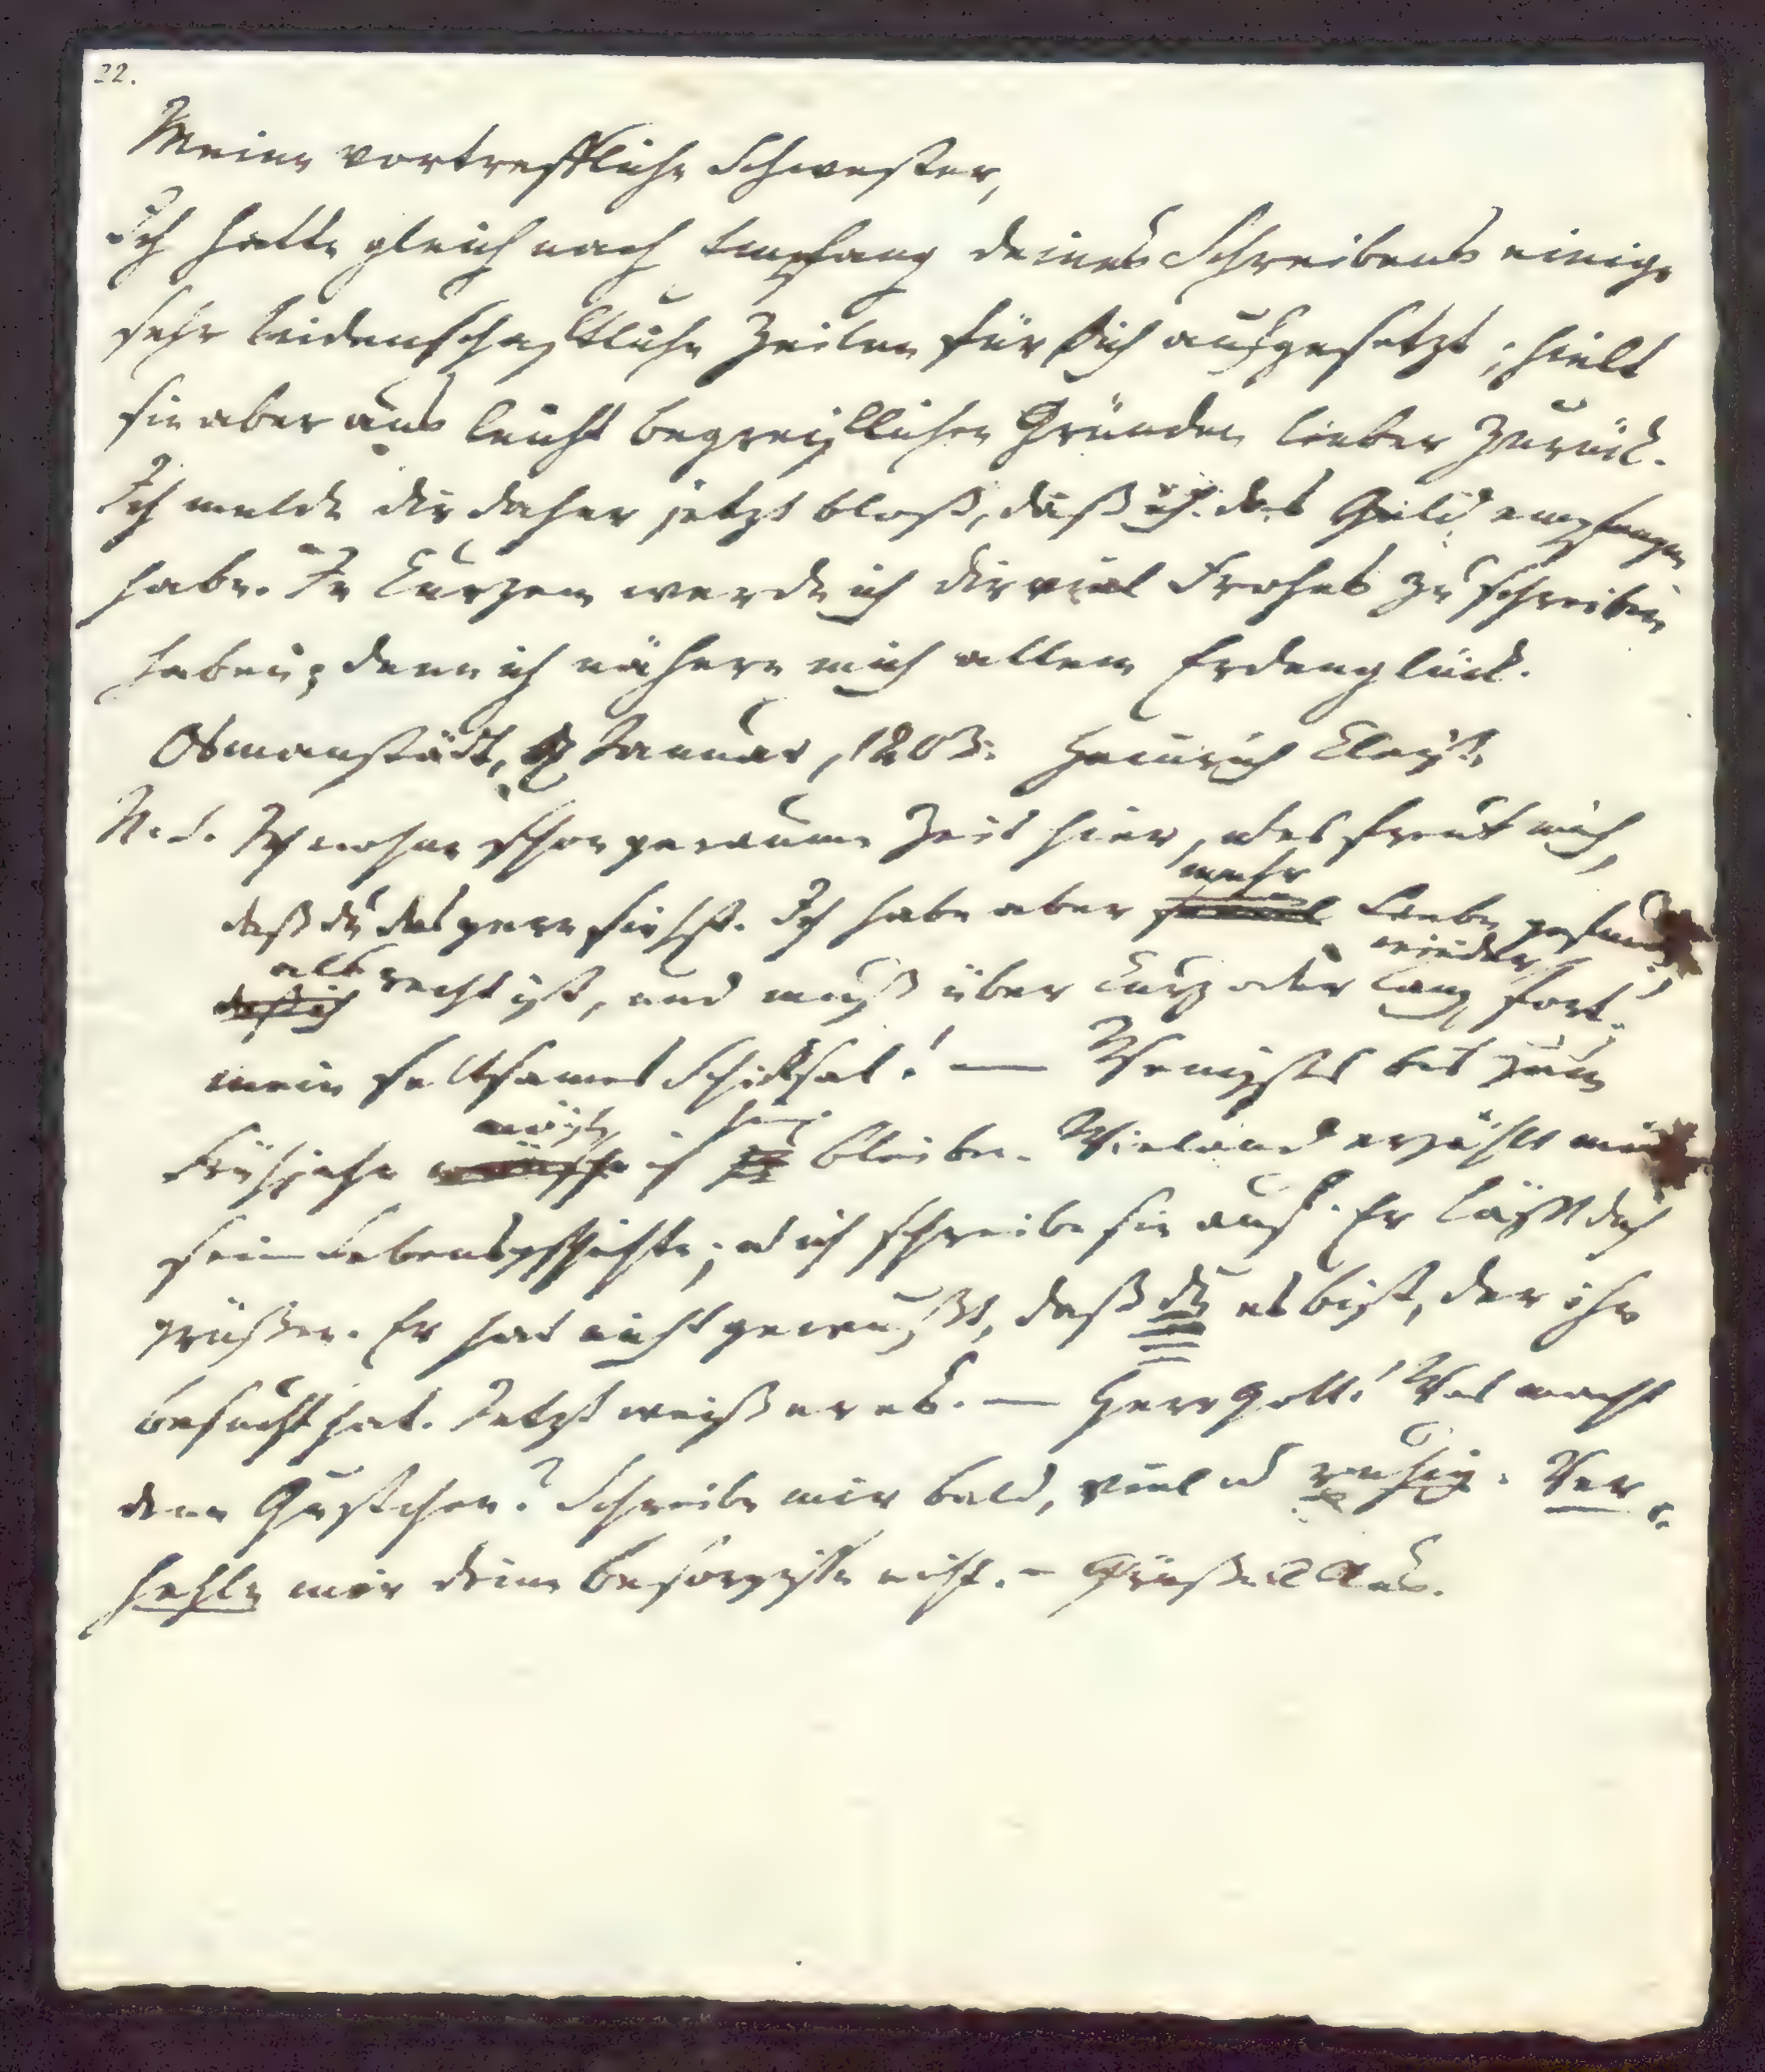 22.
Meine vortreffliche Schwester,
Ich hatte gleich nach Empfang deines Schreibens einige
sehr leidenschaftliche Zeilen für dich aufgesetzt; hielt
sie aber aus leicht begreifllichen Gründen lieber zurück.
Ich melde dir daher jetzt bloß, daß ich das Geld empfangen
habe. In Kurzem werde ich dir viel Frohes zu schreiben
haben; denn ich nähere mich allem Erdenglück.
Osmanstädt, Januar, 1803. Heinrich Kleist.
N.S. Ich wohne schon geraume Zeit hier, u es freut mich,
mehr
daß du das gern siehst. Ich habe aber Liebe gefunden,
als wieder
recht ist, und muß über kurz oder lang fort;
mein seltsames Schicksal! — Wenigstens bis zum
möchte hier
Frühjahr wünsche ich bleiben. Wieland erzählt mir
seine Lebensgeschichte; u ich schreibe sie auf. Er läßt dich
grüßen. Er hat nicht gewußt, daß du es bist, der ihn
besucht hat. Jetzt weiß er es. — Herr Gott! Was macht
denn Gustchen? Schreibe mir bald, viel u ruhig. Ver-
hehle mir deine Besorgnisse nicht. – Grüße Alles.